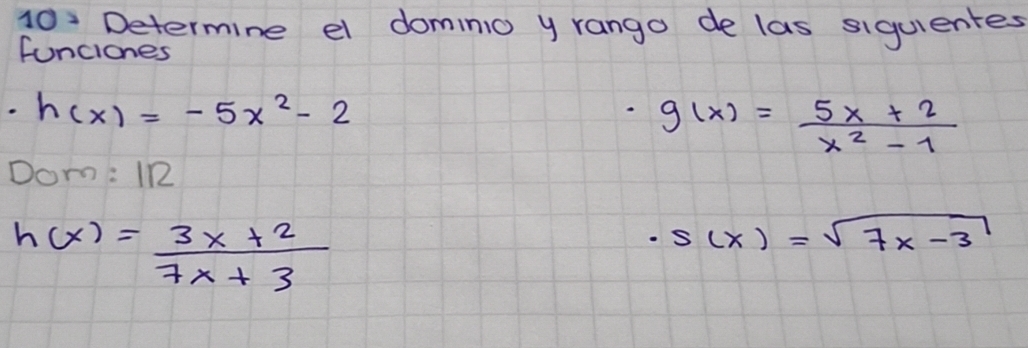 10. Determine el dominio y rango de las siguientes
funciones
· h(x) = -5x² - 2
· g(x) = (5x + 2)/(x² - 1)
Dom: ℝ
h(x) = (3x + 2)/(7x + 3)
· s(x) = √(7x - 3)